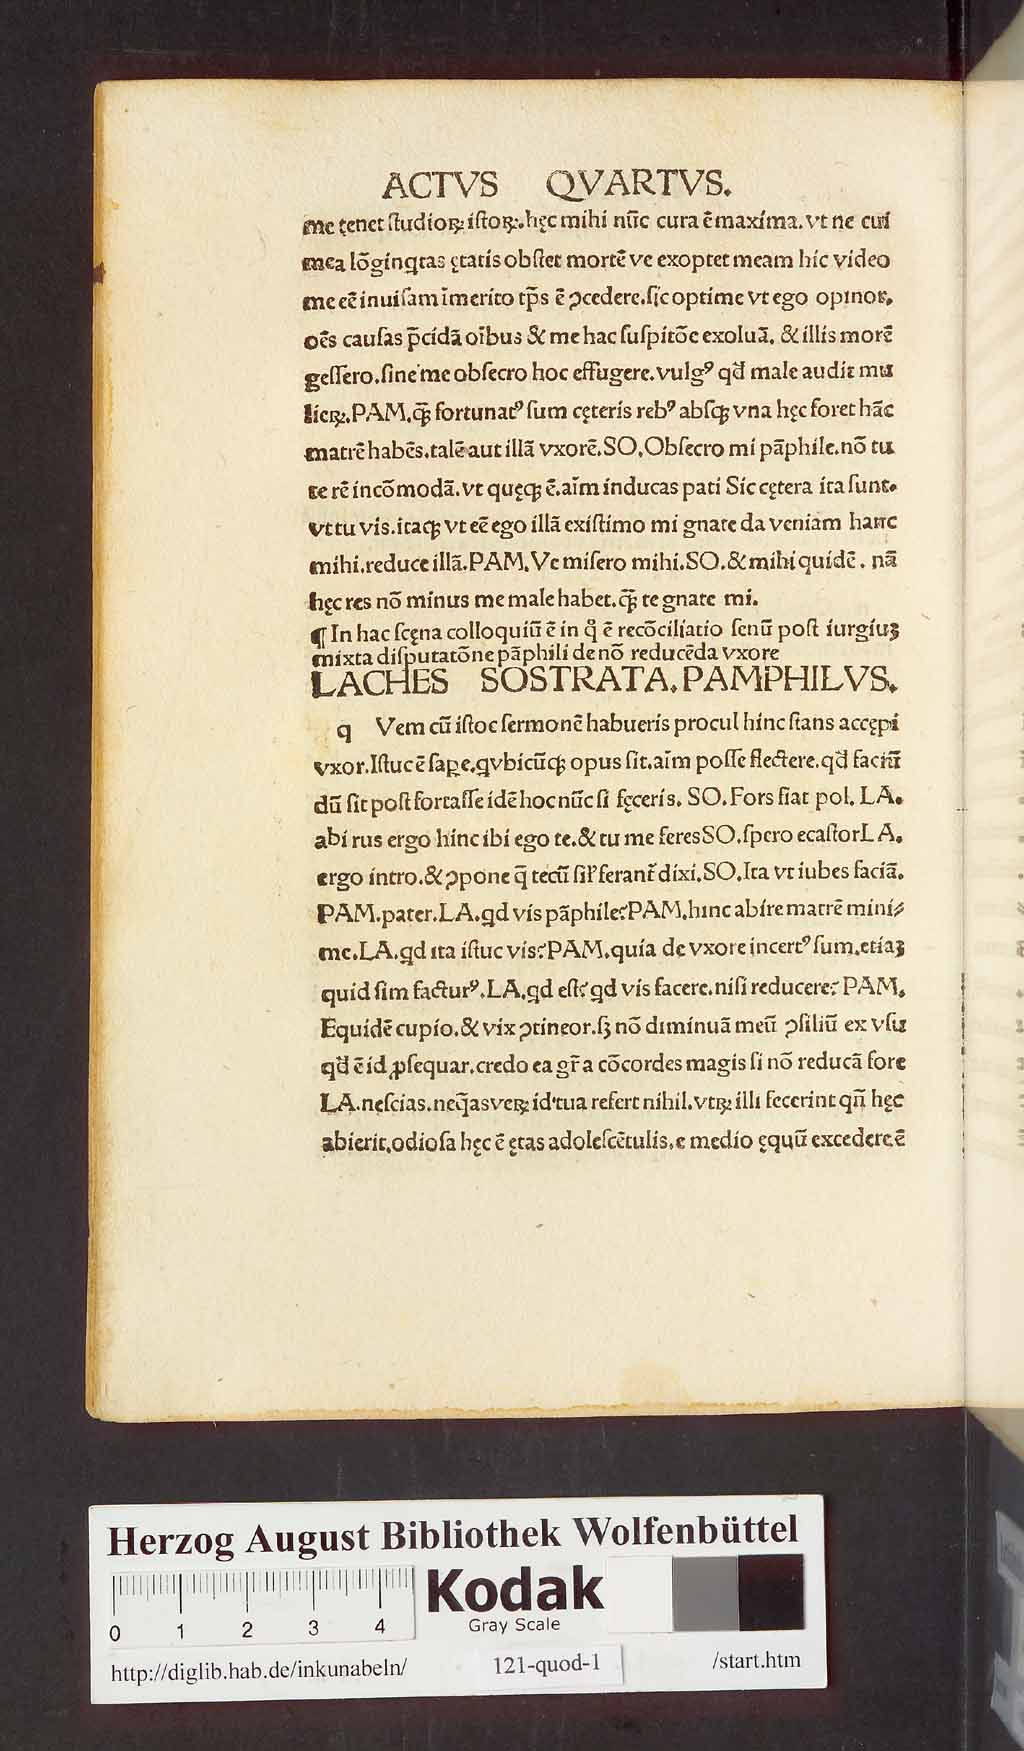 ACTVS QVARTVS.
me tenet ſtudioꝝ iſtoꝝ. hęc mihi nūc cura ē maxíma. vt ne cui
mea lōginq̇tas ętatis obſtet mortē ve exoptet meam hic video
me eē inuiſam īmerito tp̄s ē ꝯcedere. ſic optime vt ego opinor,
oēs cauſas p̄cidā oībus & me hac ſuſpitōe exoluā. & illis morē
geſſero. ſine me obſecro hoc effugere. vulgꝰ qd̄ male audit mu
lieꝝ. PAM. ꝙ̄ fortunatꝰ ſum cęteris rebꝰ abſqꝫ vna hęc foret hāc
matrē habēs. talē aut illā vxorē. SO. Obſecro mi pāphile. nō tu
te rē incōmodā. vt quęqꝫ ē. aīm inducas pati Sic cętera ita ſunt.
vt tu vis. itaqꝫ vt eē ego illā exiſtimo mi gnate da veniam hanc
mihi. reduce illā. PAM. Ve miſero mihi. SO. & mihi quidē. nā
hęc res nō minus me male habet. ꝙ̄ te gnate mi.
¶ In hac ſcęna colloquiū ē in q̊ ē recōciliatio ſenū poſt iurgiuꝫ
mixta diſputatōne pāphili de nō reducēda vxore
LACHES SOSTRATA. PAMPHILVS.
q Vem cū iſtoc ſermonē habueris procul hinc ſtans accępi
vxor. Iſtuc ē ſape. qvbicūqꝫ opus ſit. aīm poſſe flectere. qd̄ faciū
dū ſit poſt fortaſſe idē hoc nūc ſi fęceris. SO. Fors fiat pol. LA.
abi rus ergo hinc ibi ego te. & tu me feres SO. ſpero ecaſtor LA.
ergo intro. & ꝯpone q̄ tecū ſil' ferant᷑ dixi. SO. Ita vt iubes faciā.
PAM. pater. LA. qd vis pāphile? PAM. hinc abire matrē mini⸗
me. LA. qd ita iſtuc vis? PAM. quia de vxore incertꝰ ſum. etiaꝫ
quid ſim facturꝰ. LA. qd eſt? qd vis facere. niſi reducere? PAM.
Equidē cupio. & vix ꝯtineor. ſꝫ nō diminuā meū ꝯſiliū ex vſu
qd̄ ē id ꝓſequar. credo ea gr̄a cōcordes magis ſi nō reducā fore
LA. neſcias. neq̄as veꝝ id tua refert nihil. vtꝝ illi fecerint qn̄ hęc
abierit. odioſa hęc ē ętas adoleſcētulis. e medio ęquū excedere ē
Herzog August Bibliothek Wolfenbüttel
0 1 2 3 4
Kodak
Gray Scale
http://diglib.hab.de/inkunabeln/ 121-quod-1 /start.htm